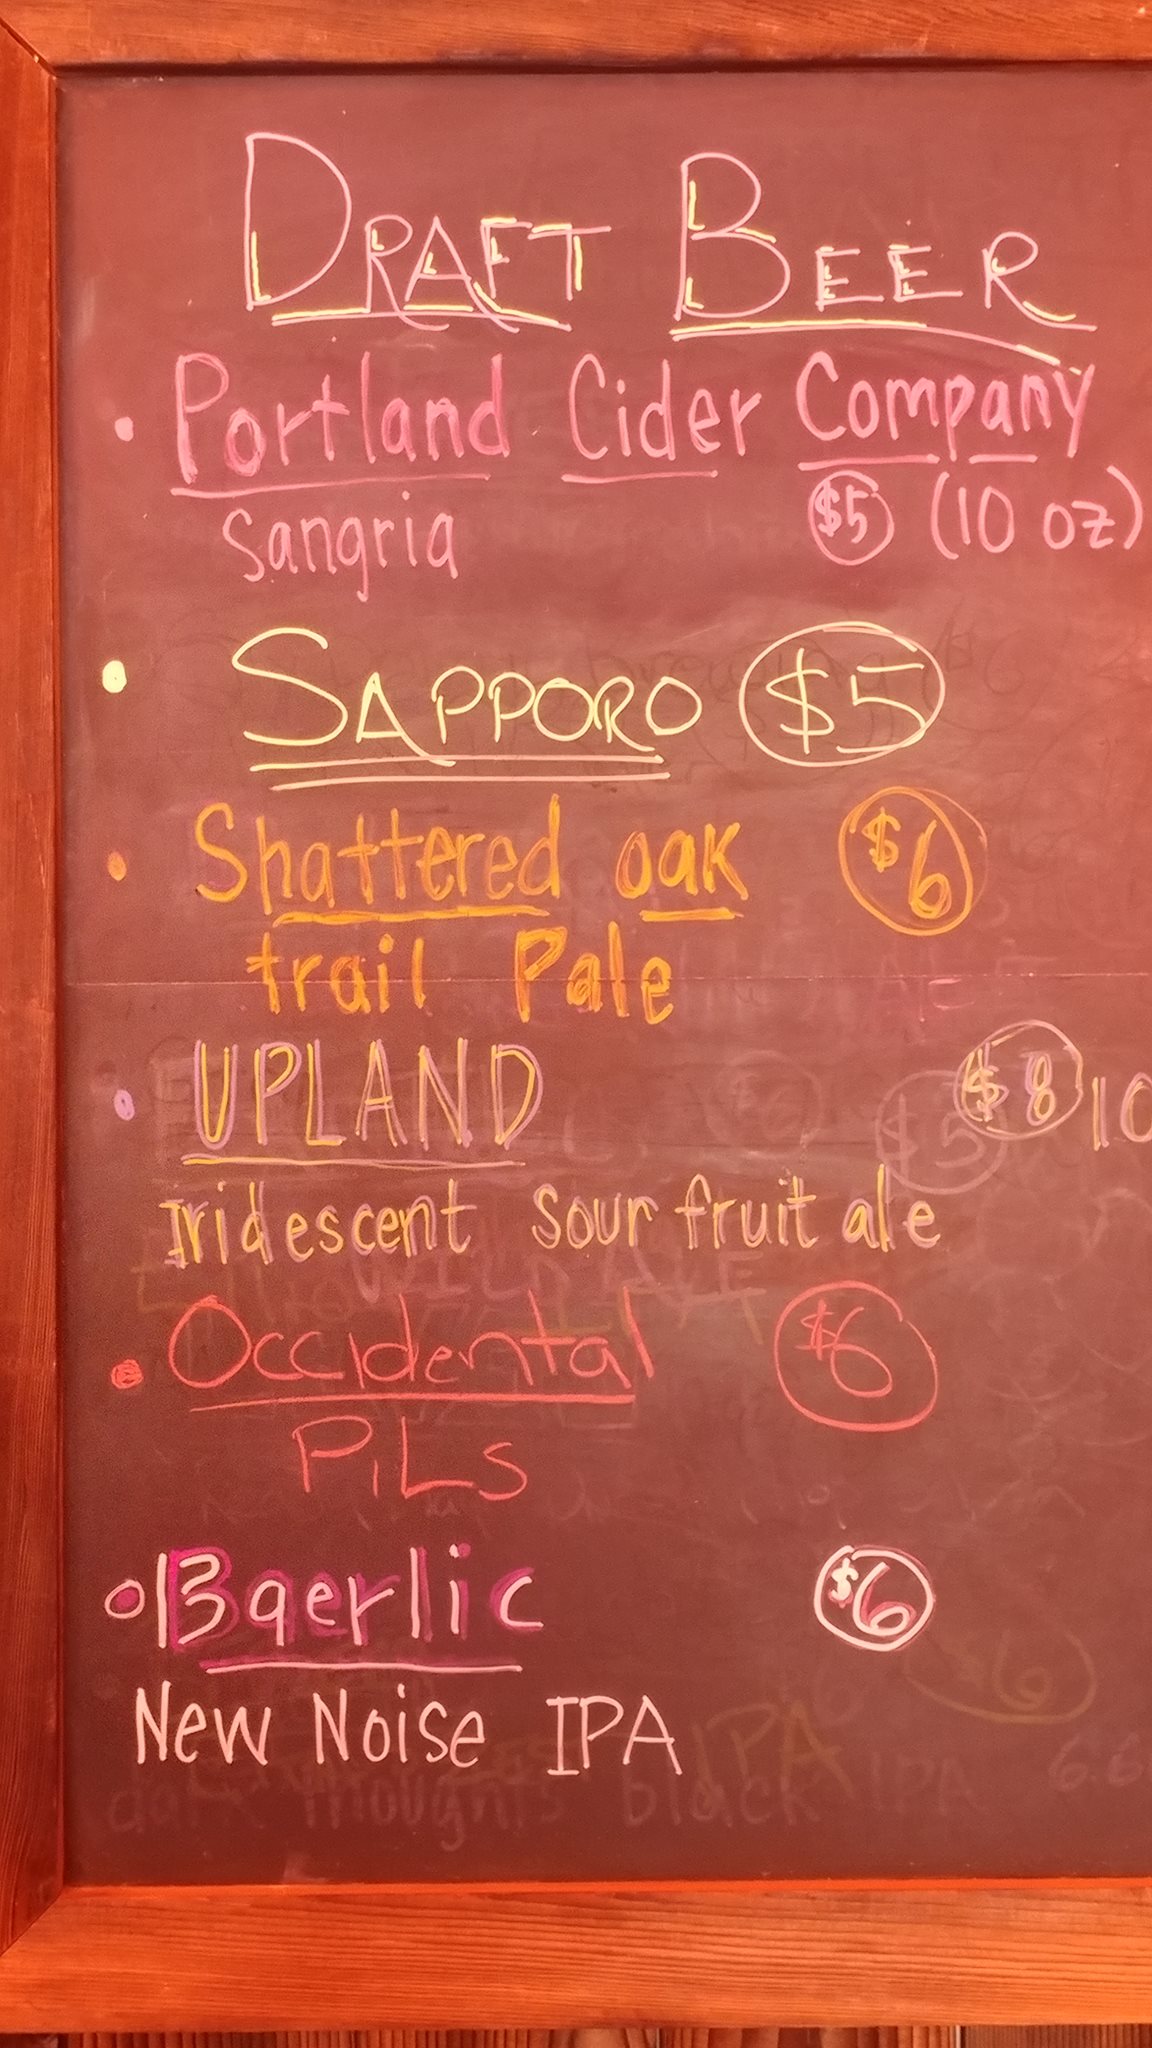 DRAFT BEER
• Portland Cider Company
Sangria $5 (10 oz)
• SAPPORO $5
• Shattered oak $6
trail Pale
• UPLAND $8 10
Iridescent sour fruit ale
• Occidental $6
PiLs
• Baerlic $6
New Noise IPA